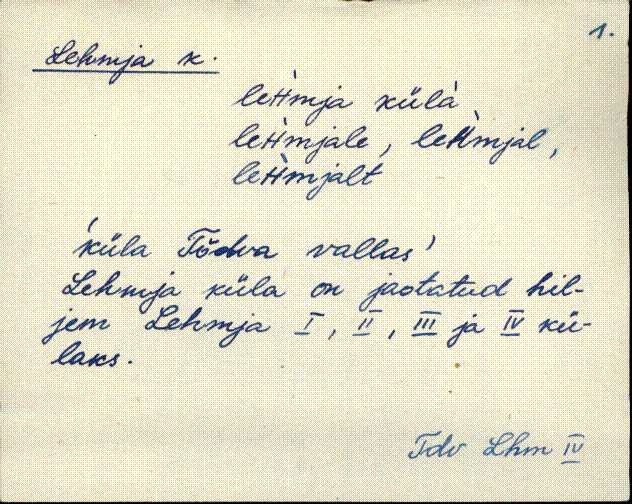 1.
Lehmja k.
leHmja külà
leHmjale, leHmjal,
leHmjalt
'küla Tõdva vallas'
Lehmja küla on jaotatud hil-
jem Lehmja I, II, III ja IV kü-
laks.
Tdv Lhm IV